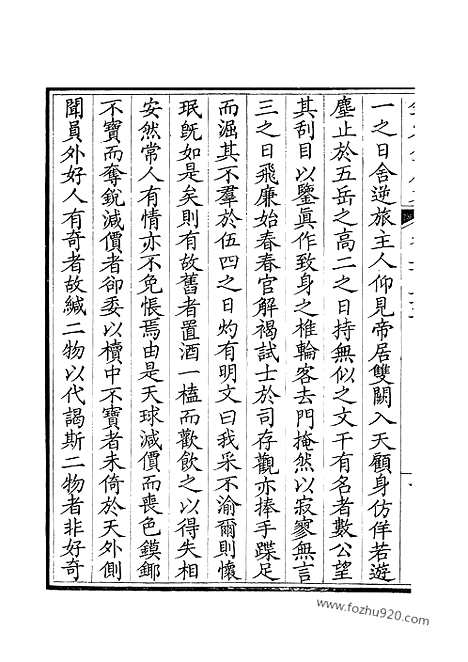 一之日舍逆旅主人仰見帝居雙闕入天顧身仿佯若遊
塵止於五岳之高二之日持無似之文干有名者數公望
其刮目以鑒真作致身之椎輪客去門掩然以寂寥無言
三之日飛廉始春春官解褐試士於司存觀亦捧手蹀足
而漏其不羣於伍四之日灼有明文曰我采不渝爾則懷
珉旣如是矣則有故舊者置酒一榼而歡飲之以得失相
安然常人有情亦不免悵焉由是天球減價而喪色鏌鎁
不寶而奪銳減價者卻委以櫝中不寶者未倚於天外側
聞員外好人有奇者故緘二物以代謁斯二物者非好奇
www.fozhu920.com